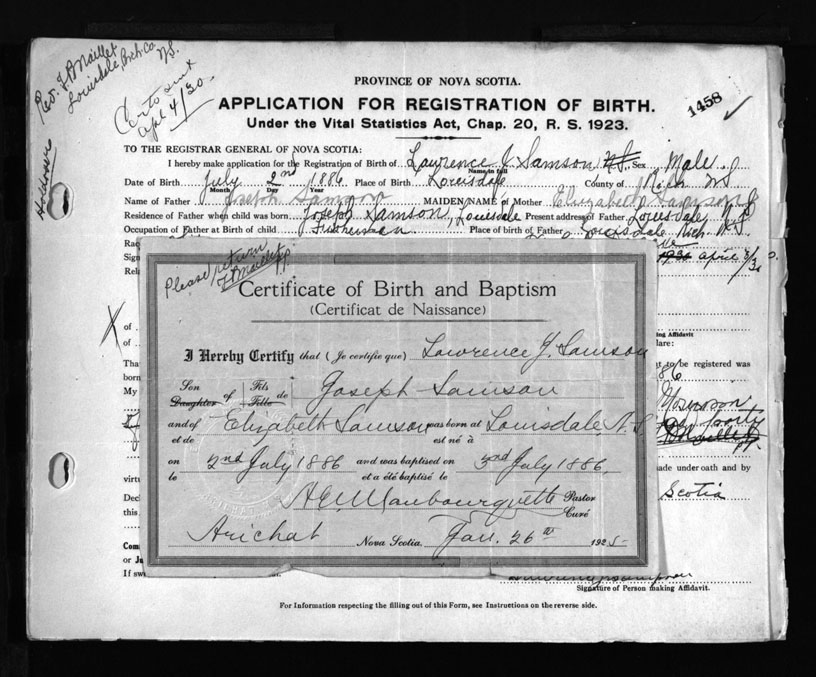 Rev. J A Maillet
Louisdale, Rich. Co.
N.S.
Certo sent
Apl 4/30.
Holdovers
PROVINCE OF NOVA SCOTIA.
APPLICATION FOR REGISTRATION OF BIRTH.
1458
Under the Vital Statistics Act, Chap. 20, R. S. 1923.
TO THE REGISTRAR GENERAL OF NOVA SCOTIA:
I hereby make application for the Registration of Birth of Lawrence J Samson N.S. Sex Male
Name in full
Date of Birth July 2nd 1886 Place of Birth Louisdale County of Rich N S
Month Day Year
Name of Father Joseph Samson MAIDEN NAME of Mother Elizabeth Samson
Residence of Father when child was born Joseph Samson, Louisdale Present address of Father Louisdale N.S.
Occupation of Father at Birth of child Fisherman Place of birth of Father Louisdale Rich. N.S.
Rac
Sig 1930 april 3/30.
Rela
Please return
J A Maillet pp
Certificate of Birth and Baptism
(Certificat de Naissance)
X
of
ing Affidavit
of
lare:
I Hereby Certify that (Je certifie que) Lawrence J. Samson
Tha
t to be registered was
born
86
Son Fils
My
Daughter of Fille de Joseph Samson
and of Elizabeth Samson was born at Louisdale, N.S.
et de est né à
on 2nd July 1886 and was baptised on 3rd July 1886.
le et a été baptisé le
virtu
made under oath and by
Decl
Scotia
this
Pastor
Curé
Arichat Nova Scotia. Jan. 26th 1925
Com
or Ju
If sw
Signature of Person making Affidavit.
For Information respecting the filling out of this Form, see Instructions on the reverse side.